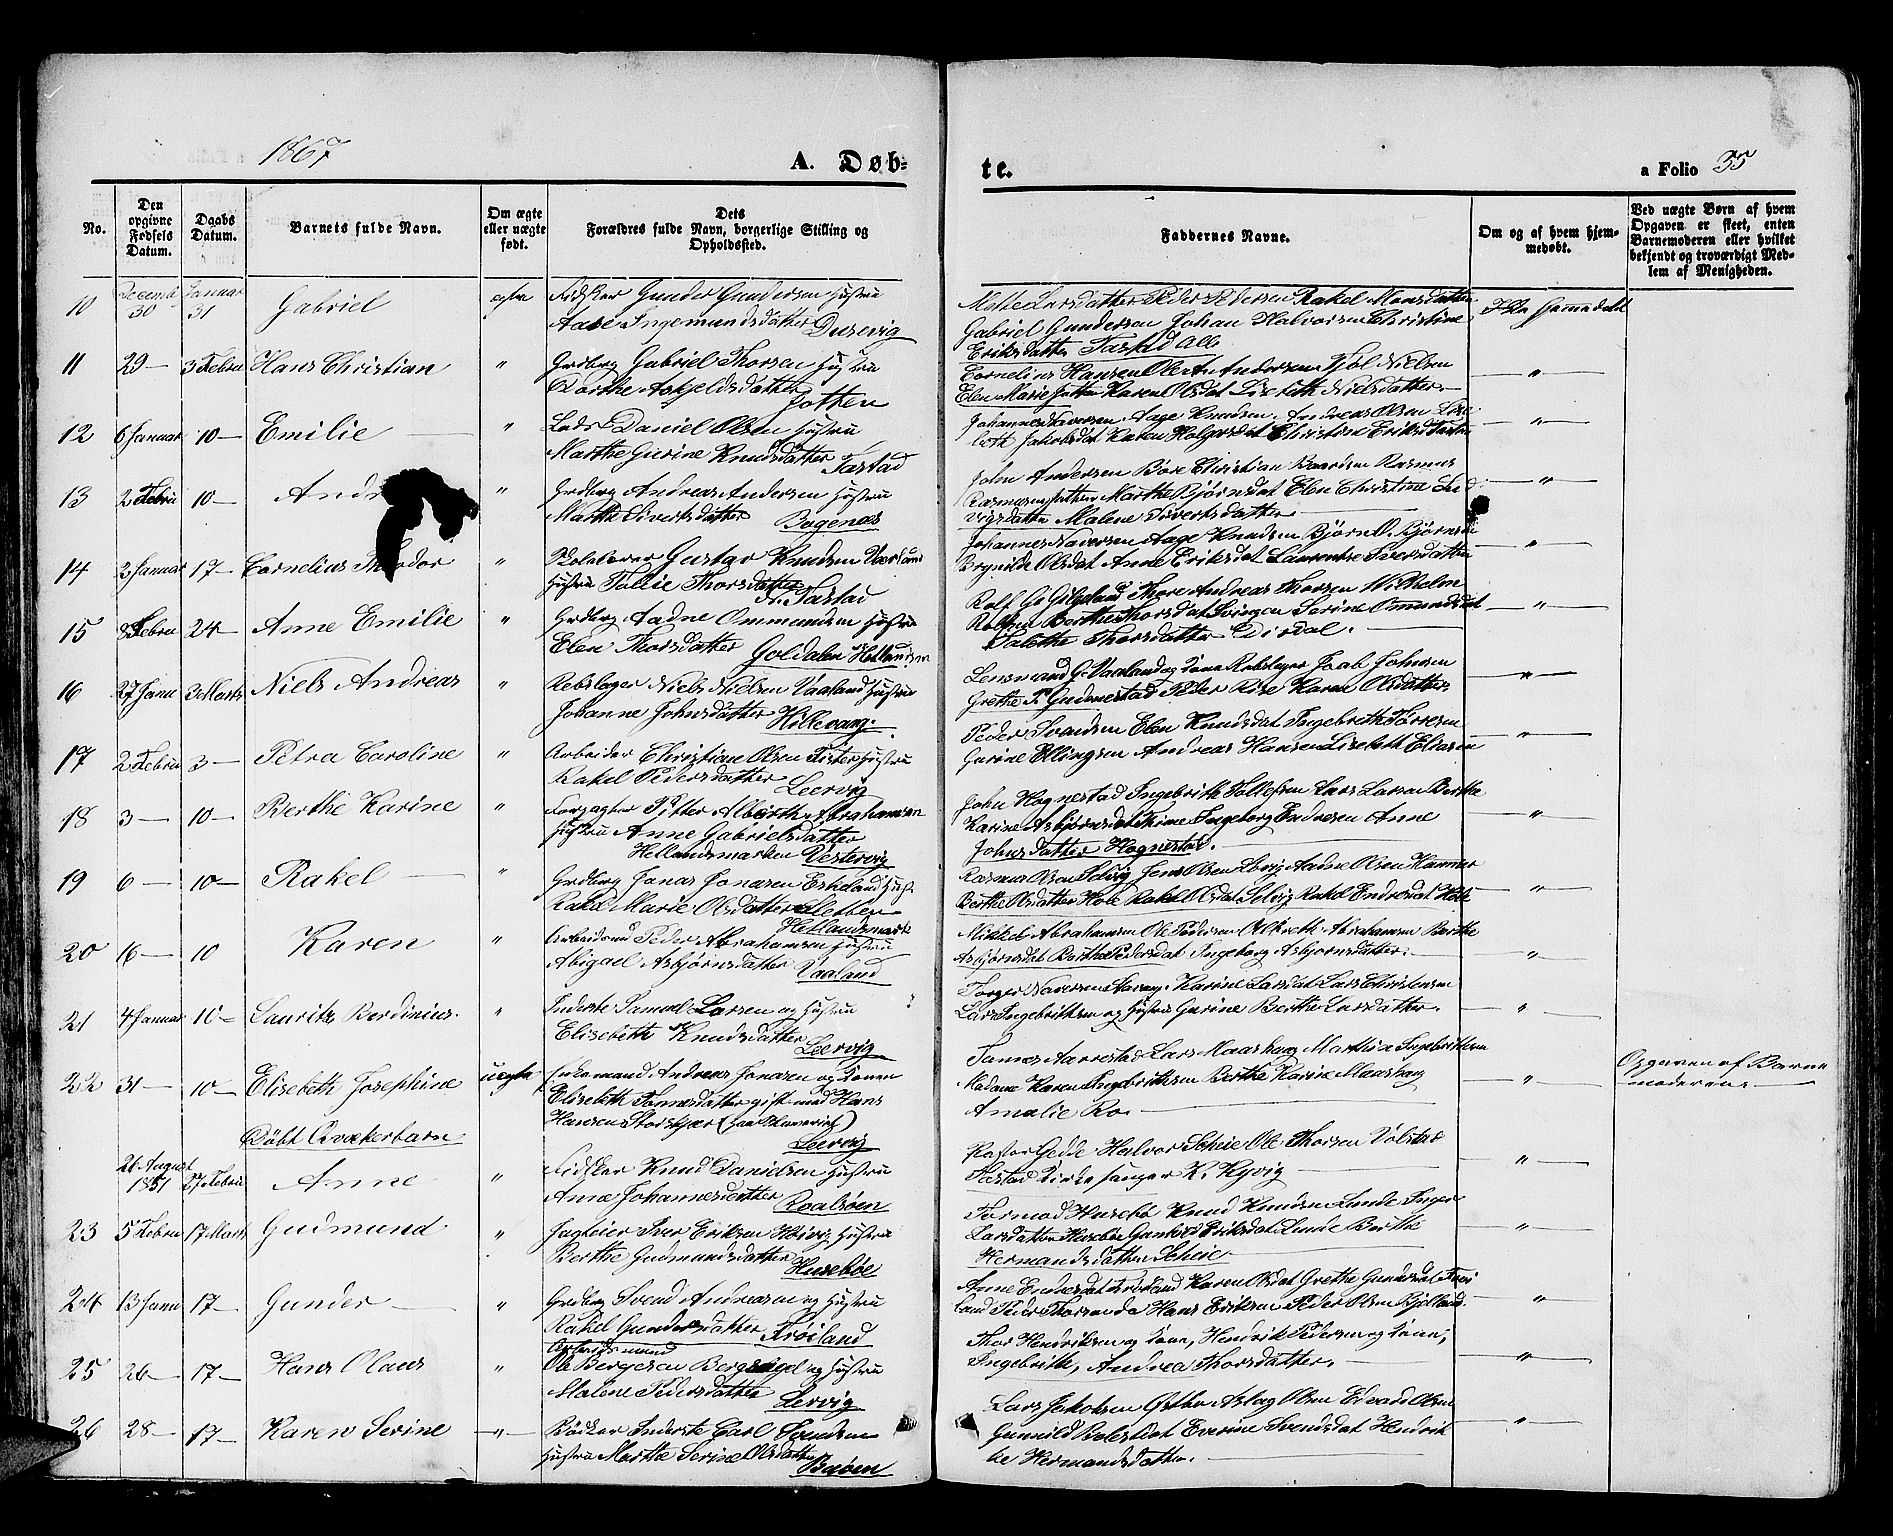 1867
A. Døb-
te.
a Folio 35
No.
Den opgivne Fødsels Datum.
Daabs Datum.
Barnets fulde Navn.
Om ægte eller uægte født.
Dets Forældres fulde Navn, borgerlige Stilling og Opholdssted.
Faddernes Navne.
Om og af hvem hjemmedøbt.
Ved uægte Børn af hvem Opgaven er skeet, enten Barnemoderen eller hvilket bekjendt og troværdigt Medlem af Menigheden.
10 Decemb 30 Januar 31 Gabriel ægte Fidsker Gunder Gundersen Hustru
Aase Ingemundsdatter Dusevig
Mette Larsdatter Peder Pedersen Rakel Monsdatter
Gabriel Gundersen Johan Halvorsen Christine
Eriksdatter Tastad Alle
11 29 — 3 Febru Hans Christian " Grdbrg Gabriel Thorsen Hustru
Dorthe Askjeldsdatter Jotten
Cornelius Hansen Ole A. Andersen Kjøl Nielsen
Elen Marie Jatten Karen Olsdat Lisebeth Nielsdatter — " —
12 6 Januar 10 — Emilie — " Lods Daniel Olsen Hustru
Marthe Gurine Knudsdatter Tastad
Aage Knudsen Andreas Olsen Lise
beth Jakobsdat Karen Holgersdat Christine Eriksd Tastad — " —
13 2 Febru 10 — Andr " Grdbrg Andreas Andersen Hustru
Marthe Sivertsdatter Bogenæs
John Andersen Bore Christian Baardsen Rasmus
Marthe Bjørnsdat Elen Christine Lud
vigsdatter Malene Sivertsdatter — " —
14 3 Januar 17 — Cornelius Theodor " Gustav Knudsen
Hustru Talie Thorsdatter Tastad
Johannes Naversen Aage Knudsen Bjørn O. Bjørnsen
Brynilde Olsdat Anne Eriksdat Laurentse Sversdatter — " —
15 8 Febru 24 — Anne Emilie " Grdbrg Aadne Ommundsen Hustru
Elen Thorsdatter Goldalen
Rolf G. Gilseland Thore Andreas Thorsen Wilhelm
Rolfsen Berthe Thorsdat Svingen Serine Omundsdat — " —
Talette Thorsdatter Dirdal.
16 27 Janu 3 Marts Niels Andreas " Rebslager Niels Nielsen Vaaland Hustru
Johanne Johnsdatter Hillevaag.
G. Vaaland og Kone Rebslager Jaab Johnsen
Grethe P. Gudmestad Peder Rise Karen Olsdatter — " —
17 2 Febru 3 — Petra Caroline " Arbeider Christian Olsen Fister Hustru
Rakel Pedersdatter Leervig
Peder Svendsen Elen Knudsdat Ingebreth Torresen
Gurine Ellingsen Andreas Hansen Lisebeth Eliasen — " —
18 3 — 10 — Berthe Karine " Forpagter Pitter Albirth Abrahamsen
Hustru Anne Gabrielsdatter
Hellandsmarken Vestervig
John Hognestad Ingebrith Tollefsen Lars Larsen Berthe
Karine Asbjørnsdat Trine Ingeborg Endresen Anne
Johnsdatter Hognestad. — " —
19 6 — 10 — Rakel — " Grdbrg Jonas Jonasen Eskeland Hust
Rakel Marie Olsdatter Sletten
Hellandsmark
Rasmus Olsen Solvig Jens Olsen Aadne Olsen Hammer
Berthe Olsdatter Hole Rakel Olsdat Solvig Rakel Endresdat Hole — " —
20 16 — 10 Karen " Arbeidsmd Peder Abrahamsen Hustru
Abigael Asbjørnsdatter Vaaland
Mikkel Abrahamsen Ole Pedersen Albreth Abrahamsen Berthe
Asbjørnsdat Berthe Pedersdat Ingeborg Asbjørnsdatter. — " —
21 4 Januar 10 — Lauritz Berdinius. " Inderste Samuel Larsen og Hustru
Elisebeth Knudsdatter Leervig
Torger Naversen Karine Larsdat Lars Christensen
Lars Ingebrithsen og Hustru Gurine Berthe Larsdatter. — " —
22 31 — 10 — Elisebeth Josephine uægte Enkemand Andreas Jonasen og Konen
Elisebeth Tonnesdatter gift med Hans
Hansen Storskjær (paa Kummevig)
Leervig
Tønnes Aarrestad Lars Maashaug Marthea Ingebrithsen
Madame Karen Ingebrithsen Berthe Karine Maashaug
Amalie Ro. — " — Opgaven af Barne
moderen. —
Døbt Qvækerbarn
26 August 1851 27 Febru Anne " Fidsker Knud Danielsen Hustru
Anne Johannesdatter Roalsøen
Pastor Gedde Halvor Scheie Ole Thorsen Volstad
Tastad Kirkesanger K. Kyvig — " —
23 5 Febru 17 Marts Gudmund " Iver Eriksen Høivig Hustru
Berthe Gudmundsdatter Husebøe
Tormod Husebø Knud Knudsen Lunde Inger
Larsdatter Husebøe Gunhild Eriksdat Lunde Berthe
Hermandsdatter Scheie — " —
24 13 Janu 17 — Gunder — " Grdbrg Svend Andreasen og Hustru
Rakel Gundersdatter Frøiland
Anne Endresdat Frøiland Karen Olsdat Grethe Gundersdat Frøi
land Peder Thorsen do Hans Eriksen Peder Olsen Bjelland. — " —
25 26 — 17 — Hans Olaus " Arbeidsmand
Ole Bergesen Bergsagel og Hustru
Malene Pedersdatter Lervig
Thor Hendriksen og Kone, Hendrik Pedersen og Kone,
Ingebritte, Andrea Thorsdatter, — " —
26 28 — 17 — Karen Serine — " — Bødker Inderste Carl Svendsen
Hustru Marthe Serine Olsdatter
Buøen
Lars Jakobsen Aslag Olsen Edvard Olsen
Gunnild Rolesdat Everine Svendsdat Hendrik
ke Hermandsdatter. — " —